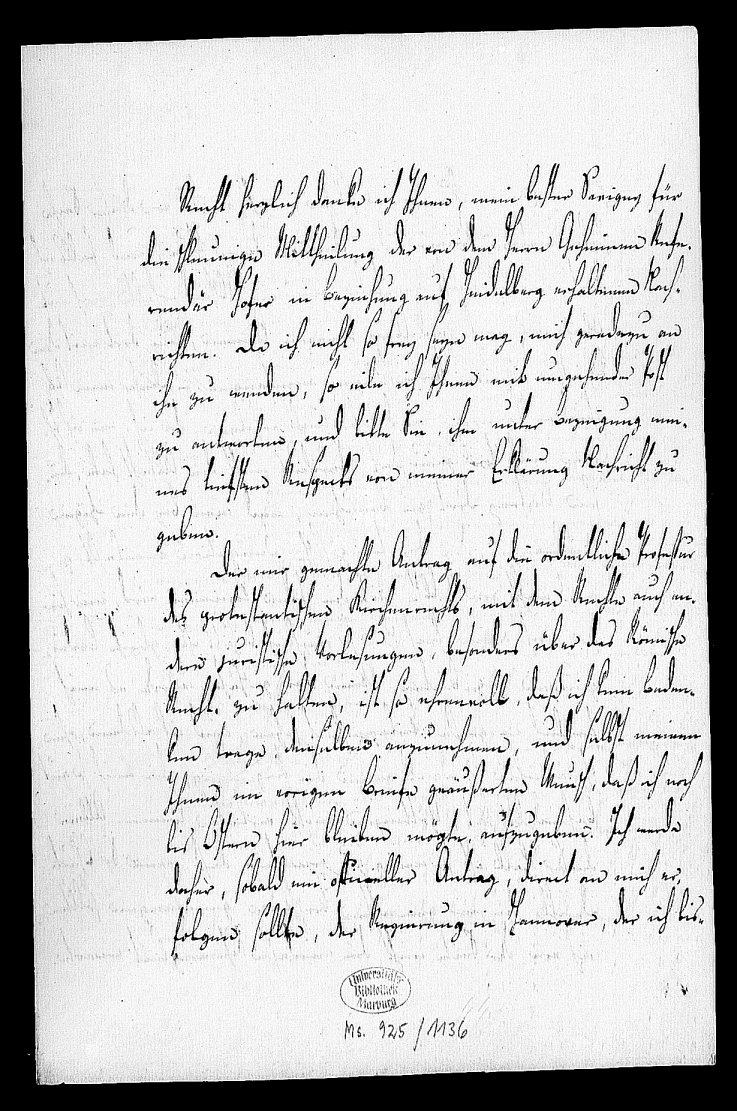 Recht herzlich danke ich Ihnen, mein bester Savigny für
die schleunige Mittheilung der von dem Herrn Geheimen Refe-
rendär Hofer in Beziehung auf Heidelberg erhaltenen Nach-
richten. Da ich nicht so frey seyn mag, mich geradezu an
ihn zu wenden, so eile ich Ihnen mit umgehender Post
zu antworten, und bitte Sie, ihm unter Bezeigung mei-
nes tiefsten Respects von meiner Erklärung Nachricht zu
geben.
Der mir gemachte Antrag auf die ordentliche Professur
des protestantischen Kirchenrechts, mit dem Rechte auch an-
dere juristische Vorlesungen, besonders über das Römische
Recht, zu halten, ist so ehrenvoll, daß ich kein Beden-
ken trage denselben anzunehmen, und selbst meinen
Ihnen im vorigen Briefe geäußerten Wunsch, daß ich noch
bis Ostern hier bleiben mögte, aufzugeben. Ich werde
daher, sobald ein officieller Antrag, direct an mich er-
folgen sollte, der Regierung in Hannover, der ich bis-
Universitäts
Bibliothek
Marburg
Ms. 925/1136